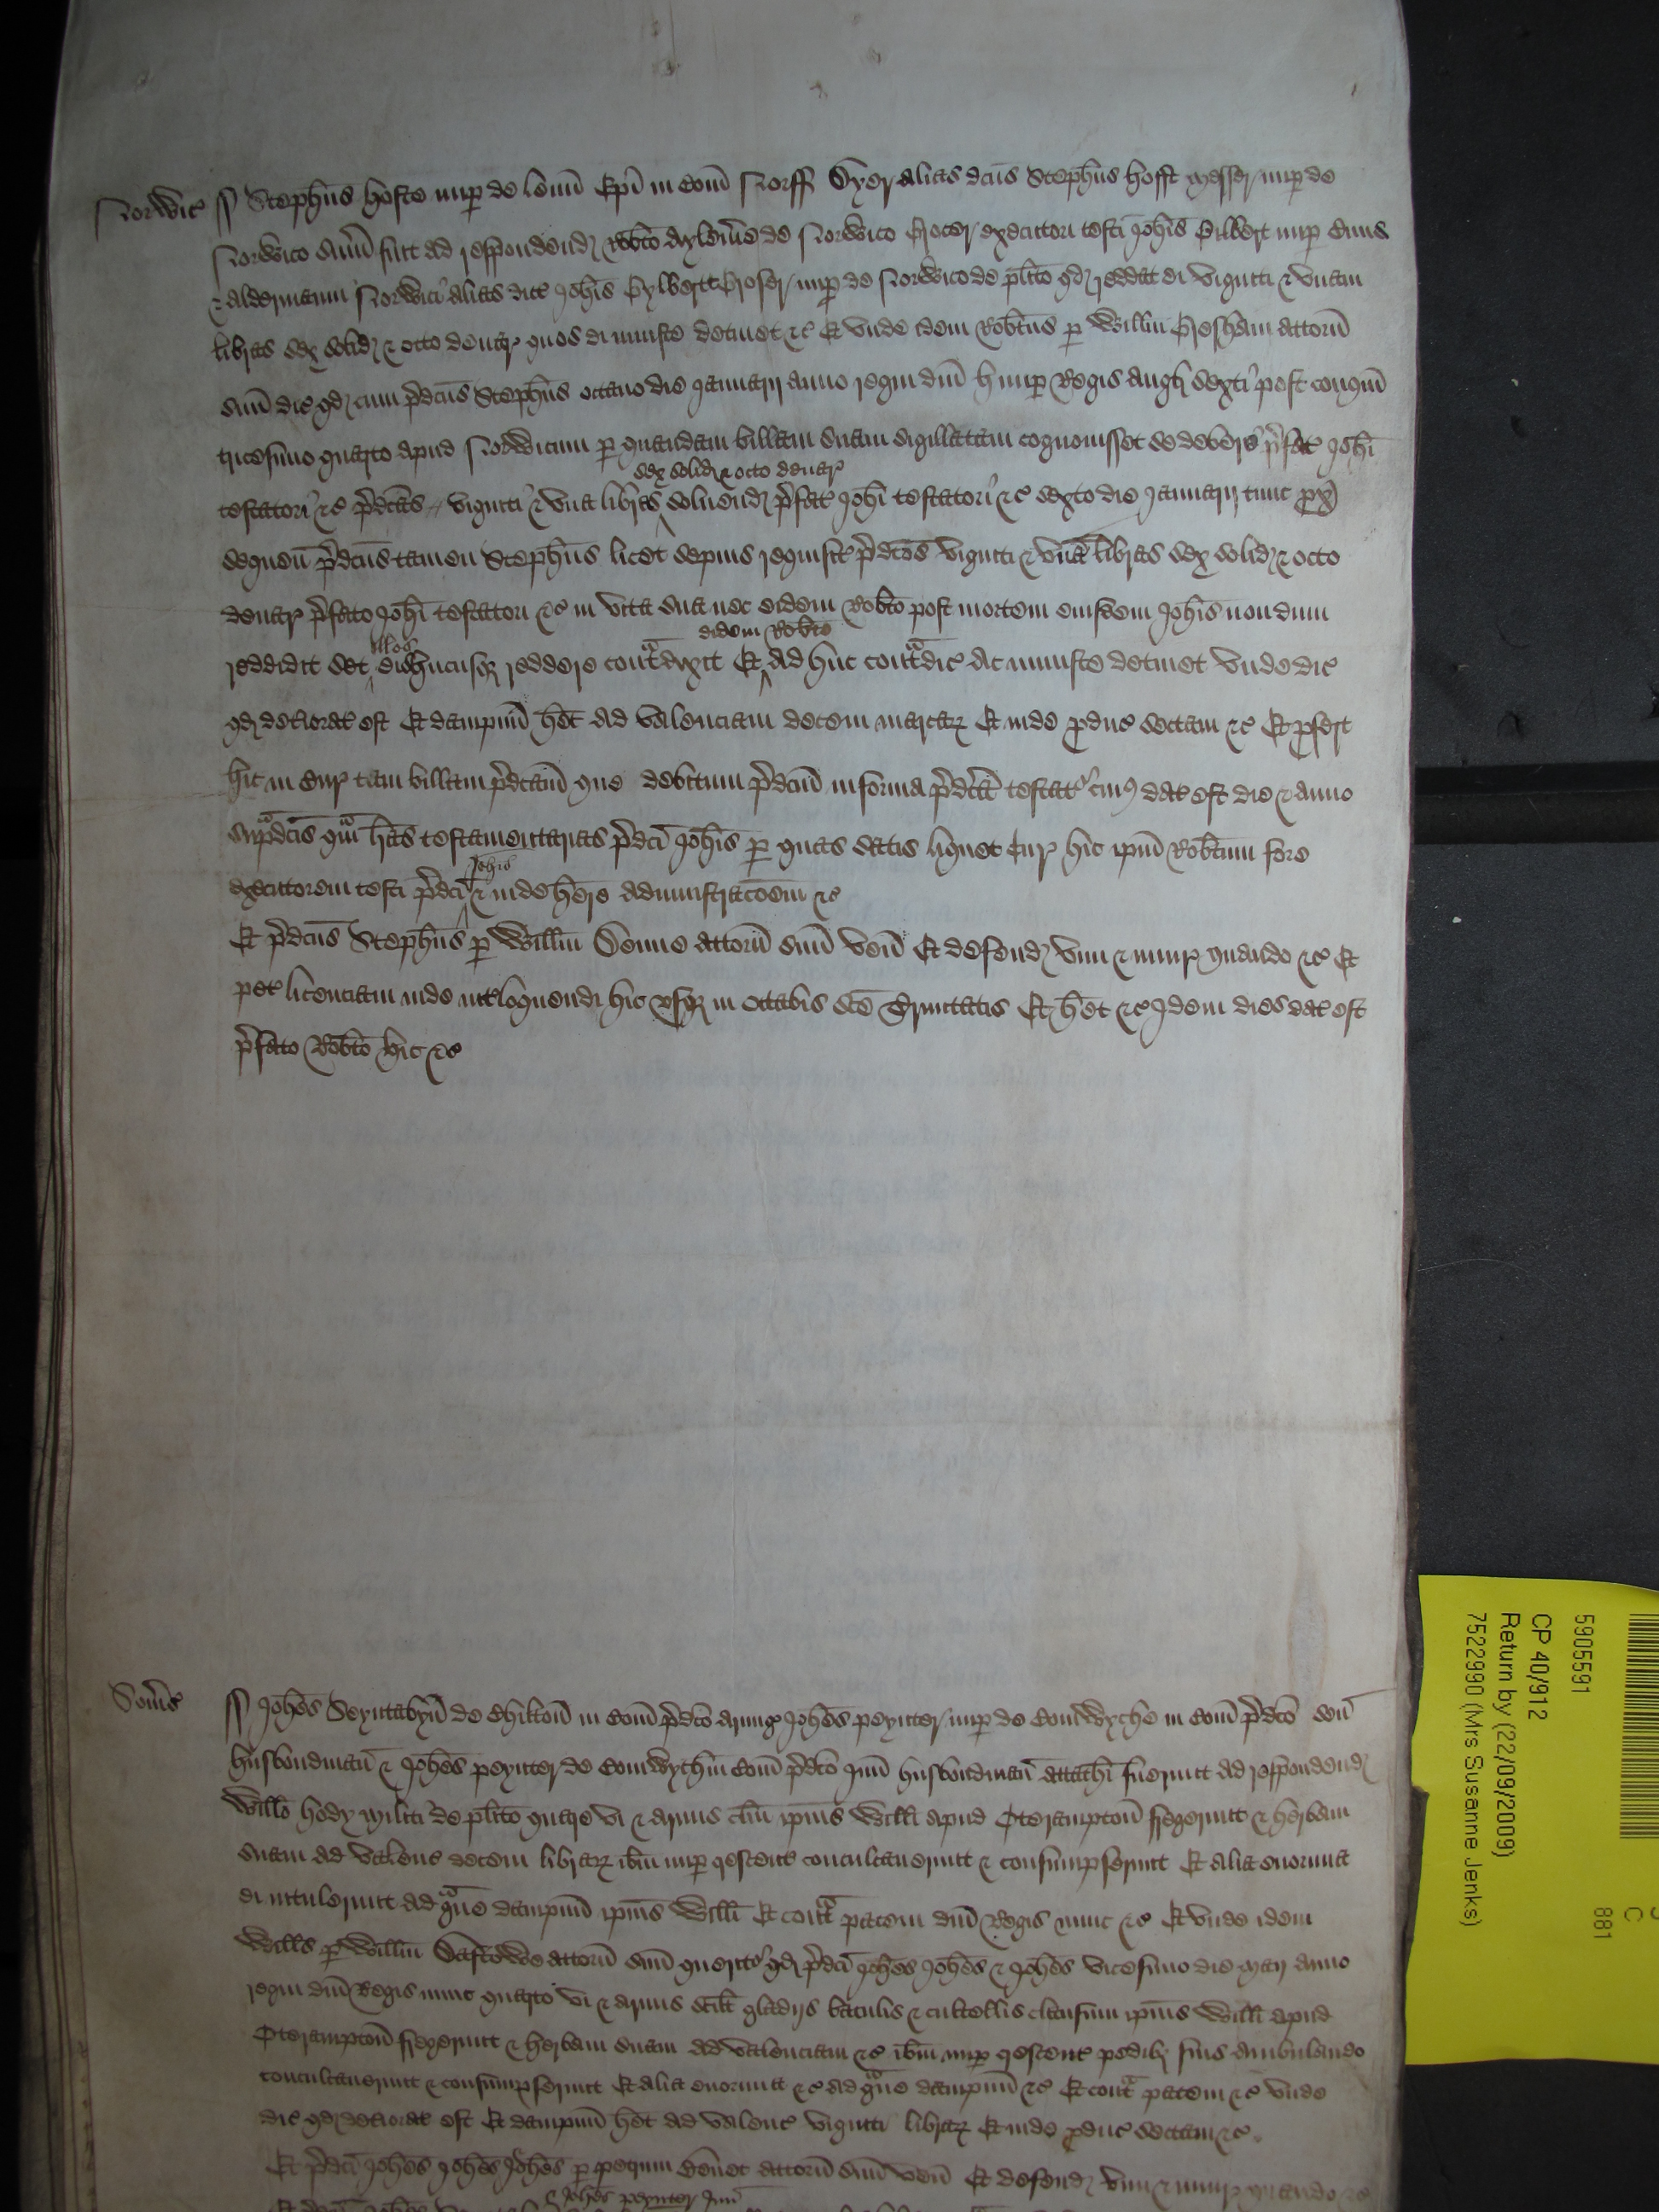 Norwic ss Stephus Hofte nup de Lenn Epi in Com Norff Dyer alias dcus Stephus Hofft Messer nup de
Norwico sum fuit ad respondend Robto Aylem'e de Norwico Grocer executori testi Johis Gilbert nup Civis
& aldermanni Norwici alias dict Johis Gylbert Groser nup de Norwico de plito qd reddat ei viginti & unam
libras sex solid & octo denar quos ei iniuste detinet &c Et unde idem Robtus p Willm Gresham attorn
suum dic qd cum p'dcus Stephus octavo die Januarii anno regni dni H nup Regis Angl sexti post conqm
tricesimo quarto apud Norwicum p quandam billam suam sigillatam cognovisset se debere p'fat Johi
sex solid & octo denar
testatori &c p'dcas viginti & una libras solvend p'fat Johi testatori &c sexto die Januarii tunc px
sequen p'dcus tamen Stephus licet sepius requisit p'dcos viginti & una libras sex solid & octo
denar p'fato Johi testatori &c in vita sua nec eidem Robto post mortem eiusdem Johis nondum
illos eidem Robto
reddidit set ei hucusq reddere contadixit Et ad huc contadic ac iniuste detinet unde dic
qd deteriorat est Et dampnu het ad valenciam decem marcar Et inde pduc sectam &c Et pfert
hic in Cur tam billam p'dcam que debitum p'dcm in forma p'dca testat' cui9 dat est die & anno
supadcis qam lras testamentarias p'dci Johis p quas satis liquet Cur hic ipm Robtum fore
Johis
executorem testi p'dci & inde here administracoem &c
Et p'dcus Stephus p Willm Denne attorn suum ven Et defend vim & iniur quando &c Et
pet licenciam inde intloquendi hic usq in Octabis sce Trinitatis Et het &c Idem dies dat est
p'fato Robto hic &c
Som's ss Johes Seyntabyn de Chilton in Com p'dco Armig Johes Peynter nup de Comwyche in Com p'dco sen
husbondman & Johes Peynter de Comwych in Com p'dco Jun husbondman attachi fuerunt ad respondend
Willo Hody Militi de plito quare vi & armis clm ipius Willi apud Oterampton fregerunt & herbam
suam ad valenc decem librar ibm nup crescent conculcaverunt & consumpserunt Et alia enormia
ei intulerunt ad gave dampnu ipius Willi Et conta pacem dni Regis nunc &c Et unde idem
Wills p Willm attorn suum querit' qd p'dci Johes Johes & Johes vicesimo die Maii anno
regni dni Regis nunc quarto vi & armis scilt gladiis baculis & cultellis clausum ipius Willi apud
Oterampton fregerunt & herbam suam ad valenciam &c ibm nup crescent pedib suis ambulando
conculcaverunt & consumpserunt Et alia enormia &c ad gave dampnu &c Et conta pacem &c unde
dic qd deteriorat est Et dampnu het ad valenc viginti librar Et inde pduc sectam &c
Et p'dci Johes Johes & Johes p attorn suum ven Et defend vim & iniur quando &c
& Johes Peynter Jun
5905591
CP 40/912
Return by (22/09/2009)
7522990 (Mrs Susanne Jenks)
C
881